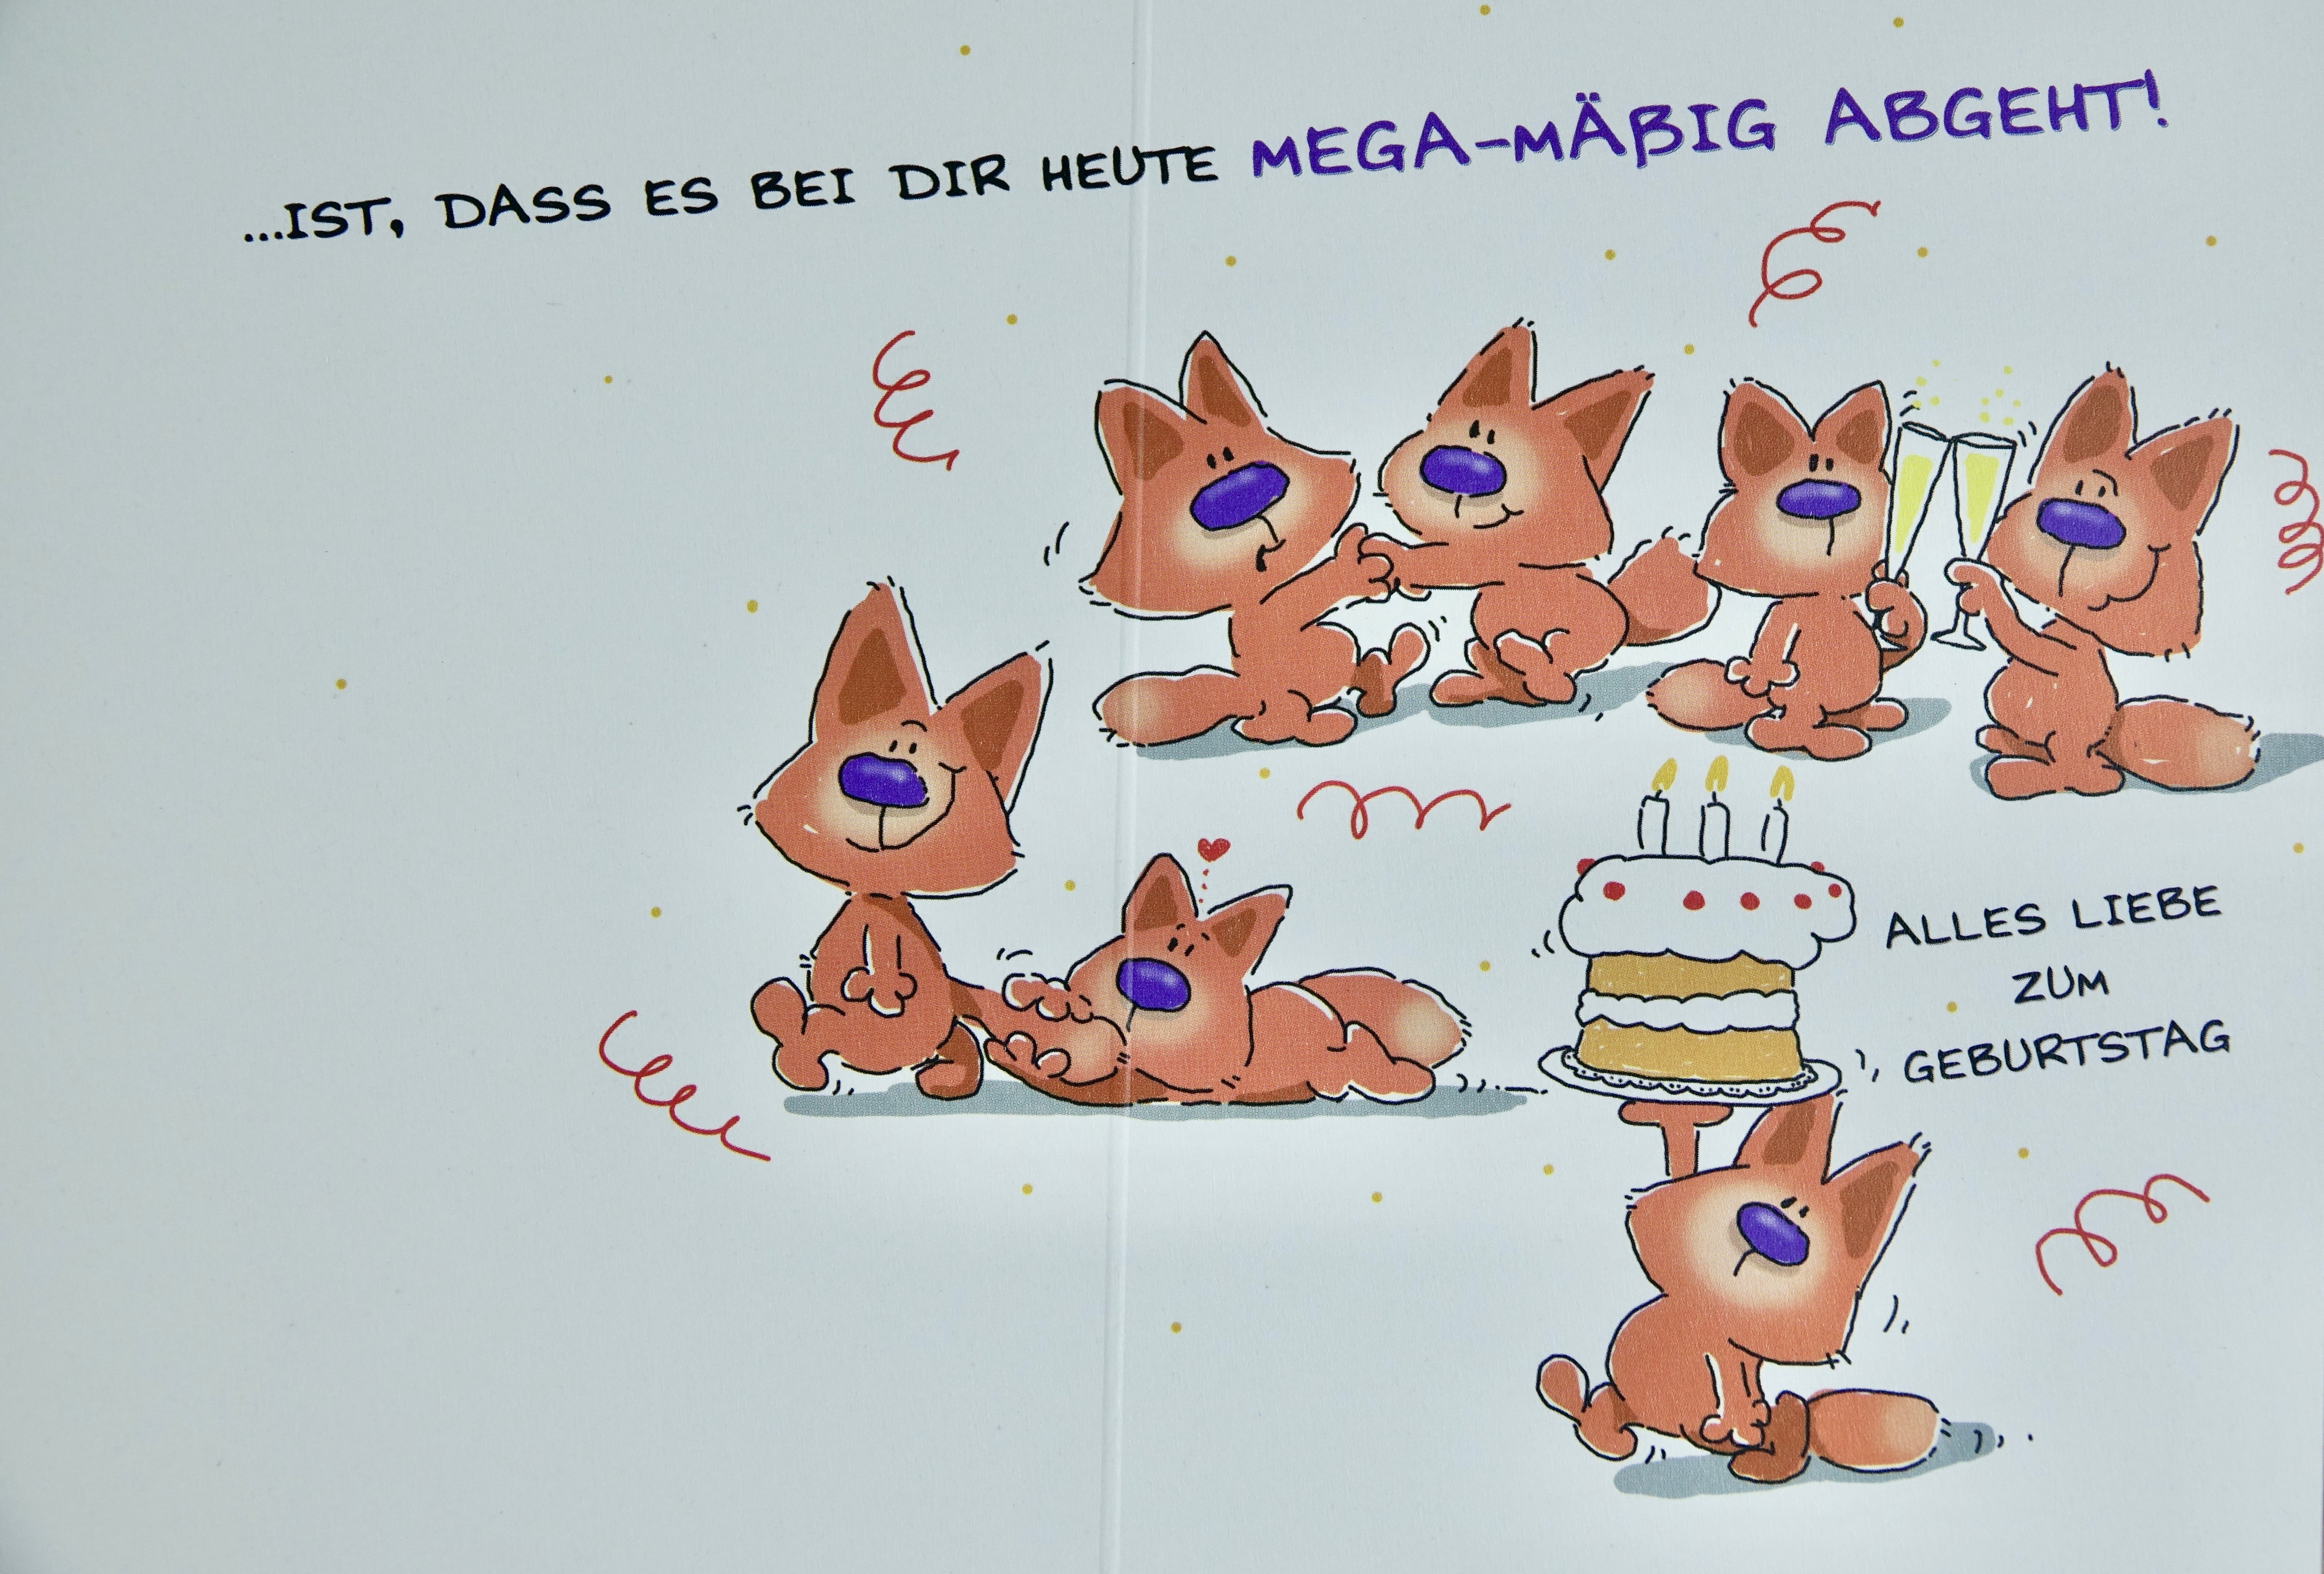 ...IST, DASS ES BEI DIR HEUTE MEGA-MÄßIG ABGEHT!
ALLES LIEBE
ZUM
GEBURTSTAG